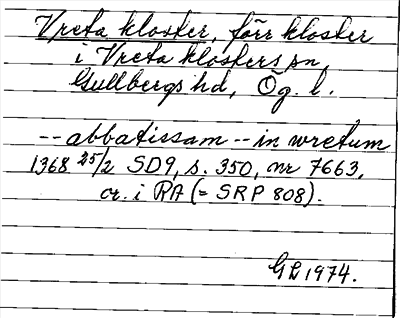 Vreta kloster, förr kloster
i Vreta klosters sn,
Gullbergs hd, Ög. l.
-- abbatissam -- in wretum
1368 25/2 SD9, s. 350, nr 7663,
or. i RA (= SRP 808).
GL 1974.